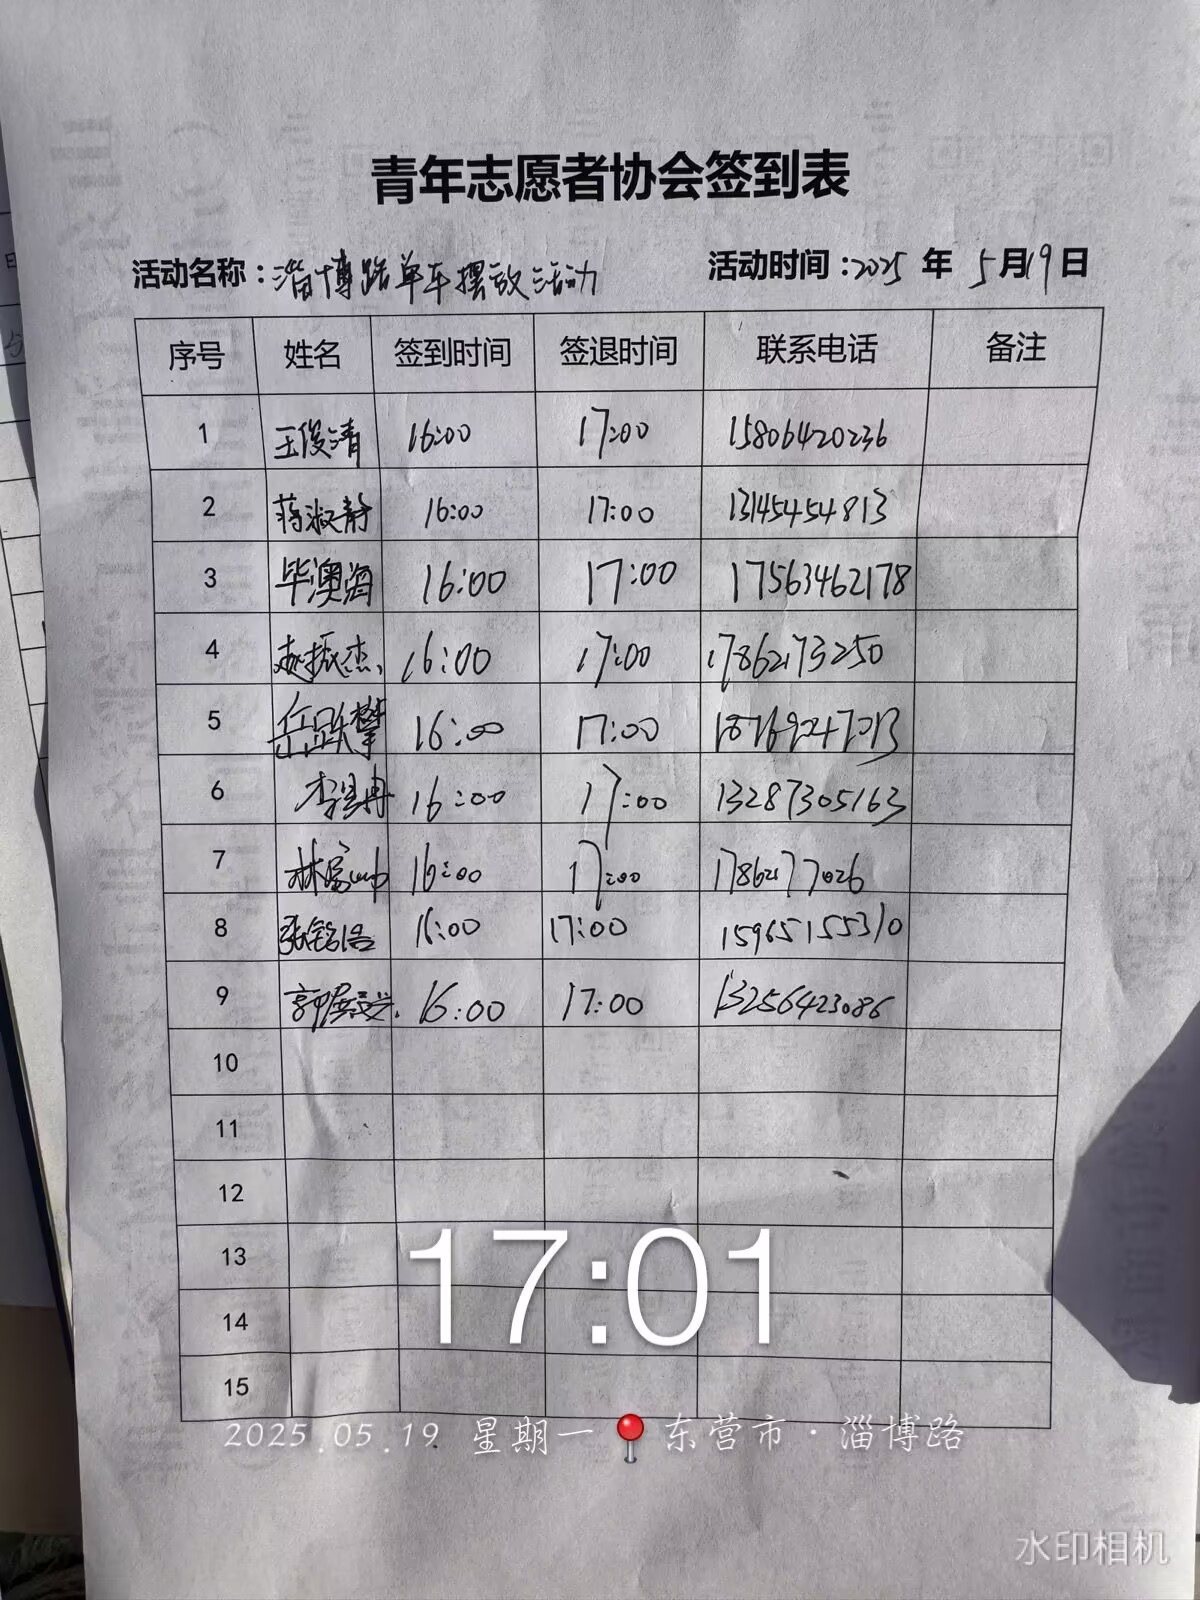 青年志愿者协会签到表
活动名称：淄博路单车摆放活动 活动时间：2025 年 5月19日
序号 姓名 签到时间 签退时间 联系电话 备注
1 王俊清 16:00 17:00 15806420236
2 蒋淑静 16:00 17:00 13145454813
3 毕澳海 16:00 17:00 17563462178
4 赵振杰 16:00 17:00 17862173250
5 岳跃攀 16:00 17:00 18769247013
6 李昱冉 16:00 17:00 13287305163
7 林富 16:00 17:00 17862177026
8 张铭浩 16:00 17:00 15965155310
9 郭 16:00 17:00 13256423086
10
11
12
13
14
15
17:01
2025.05.19 星期一 东营市·淄博路
水印相机